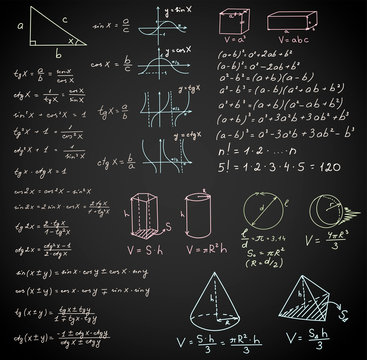 a
c
b
x
sin x = a/c
cos x = b/c
tg x = a/b
ctg x = b/a
y = sin x
y = cos x
y = tg x
y = ctg x
tg x = a/c = sin x / cos x
ctg x = 1/tg x = cos x / sin x
sin² x + cos² x = 1
tg² x + 1 = 1/cos² x
ctg² x + 1 = 1/sin² x
tg x · ctg x = 1
cos 2x = cos² x - sin² x
sin 2x = 2 sin x · cos x = 2·tg x / 1+tg² x
tg 2x = 2·tg x / 1-tg² x
ctg 2x = ctg² x - 1 / 2·ctg x
sin (x ± y) = sin x · cos y ± cos x · sin y
cos (x ± y) = cos x · cos y ∓ sin x · sin y
tg (x ± y) = tg x ± tg y / 1 ∓ tg x · tg y
ctg (x ± y) = -1 ± ctg x · ctg y / ctg x ± ctg y
V = a³
V = abc
(a+b)² = a² + 2ab + b²
(a-b)² = a² - 2ab + b²
a² - b² = (a-b)(a+b)
a³ - b³ = (a-b)(a² + ab + b²)
(a+b)³ = a³ + 3a²b + 3ab² + b³
(a-b)³ = a³ - 3a²b + 3ab² - b³
n! = 1 · 2 · ... · n
5! = 1 · 2 · 3 · 4 · 5 = 120
h
S
V = S·h
r
h
V = πR²h
l
d
l/d = π = 3,14
S₀ = πR²
(R = d/2)
V = 4πR³/3
h
R
V = S·h/3 = πR²·h/3
h
S₀
V = S₀h/3